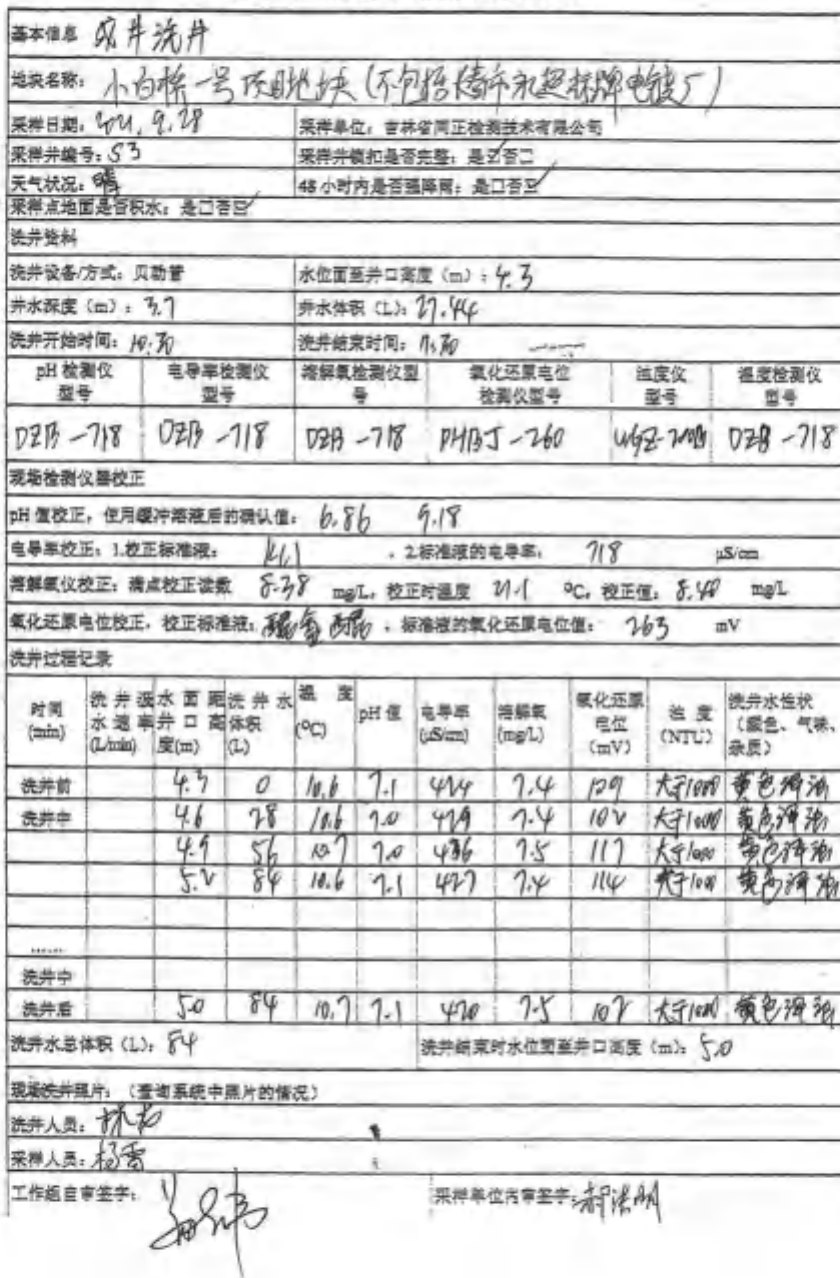 基本信息 成井洗井
地块名称: 小白桥一号项目地块(不包括 永超标牌电镀厂)
采样日期: 9.28 采样单位: 吉林省同正检测技术有限公司
采样井编号: S3 采样井锁扣是否完整: 是☑否□
天气状况: 晴 48小时内是否强降雨: 是□否☑
采样点地面是否积水: 是□否☑
洗井资料
洗井设备/方式: 贝勒管 水位面至井口高度(m): 4.3
井水深度(m): 3.7 井水体积(L): 27.44
洗井开始时间: 10:30 洗井结束时间: 11:30
pH 检测仪型号 电导率检测仪型号 溶解氧检测仪型号 氧化还原电位检测仪型号 浊度仪型号 温度检测仪型号
DZB-718 DZB-718 DZB-718 PHBJ-260 DZB-718
现场检测仪器校正
pH 值校正,使用缓冲溶液后的确认值: 6.86 9.18
电导率校正: 1.校正标准液: ,2.标准液的电导率: 718 μS/cm
溶解氧仪校正: 满点校正读数 8.38 mg/L, 校正时温度 21.1 ℃, 校正值: 8.40 mg/L
氧化还原电位校正,校正标准液: 醌氢醌 ,标准液的氧化还原电位值: 263 mV
洗井过程记录
时间(min) 洗井汲水速率(L/min) 水面距井口高度(m) 洗井水体积(L) 温度(℃) pH值 电导率(μS/cm) 溶解氧(mg/L) 氧化还原电位(mV) 浊度(NTU) 洗井水性状(颜色、气味、杂质)
洗井前 4.3 0 10.6 7.1 424 7.4 129 大于1000 黄色浑浊
洗井中 4.6 28 10.6 7.0 429 7.4 102 大于1000 黄色浑浊
4.9 56 10.7 7.0 436 7.5 117 大于1000 黄色浑浊
5.2 84 10.6 7.1 427 7.4 114 大于1000 黄色浑浊
......
洗井中
洗井后 5.0 84 10.7 7.1 420 7.5 102 大于1000 黄色浑浊
洗井水总体积(L): 84 洗井结束时水位面至井口高度(m): 5.0
现场洗井照片: (查询系统中照片的情况)
洗井人员:
采样人员: 杨雷
工作组自审签字: 采样单位内审签字: